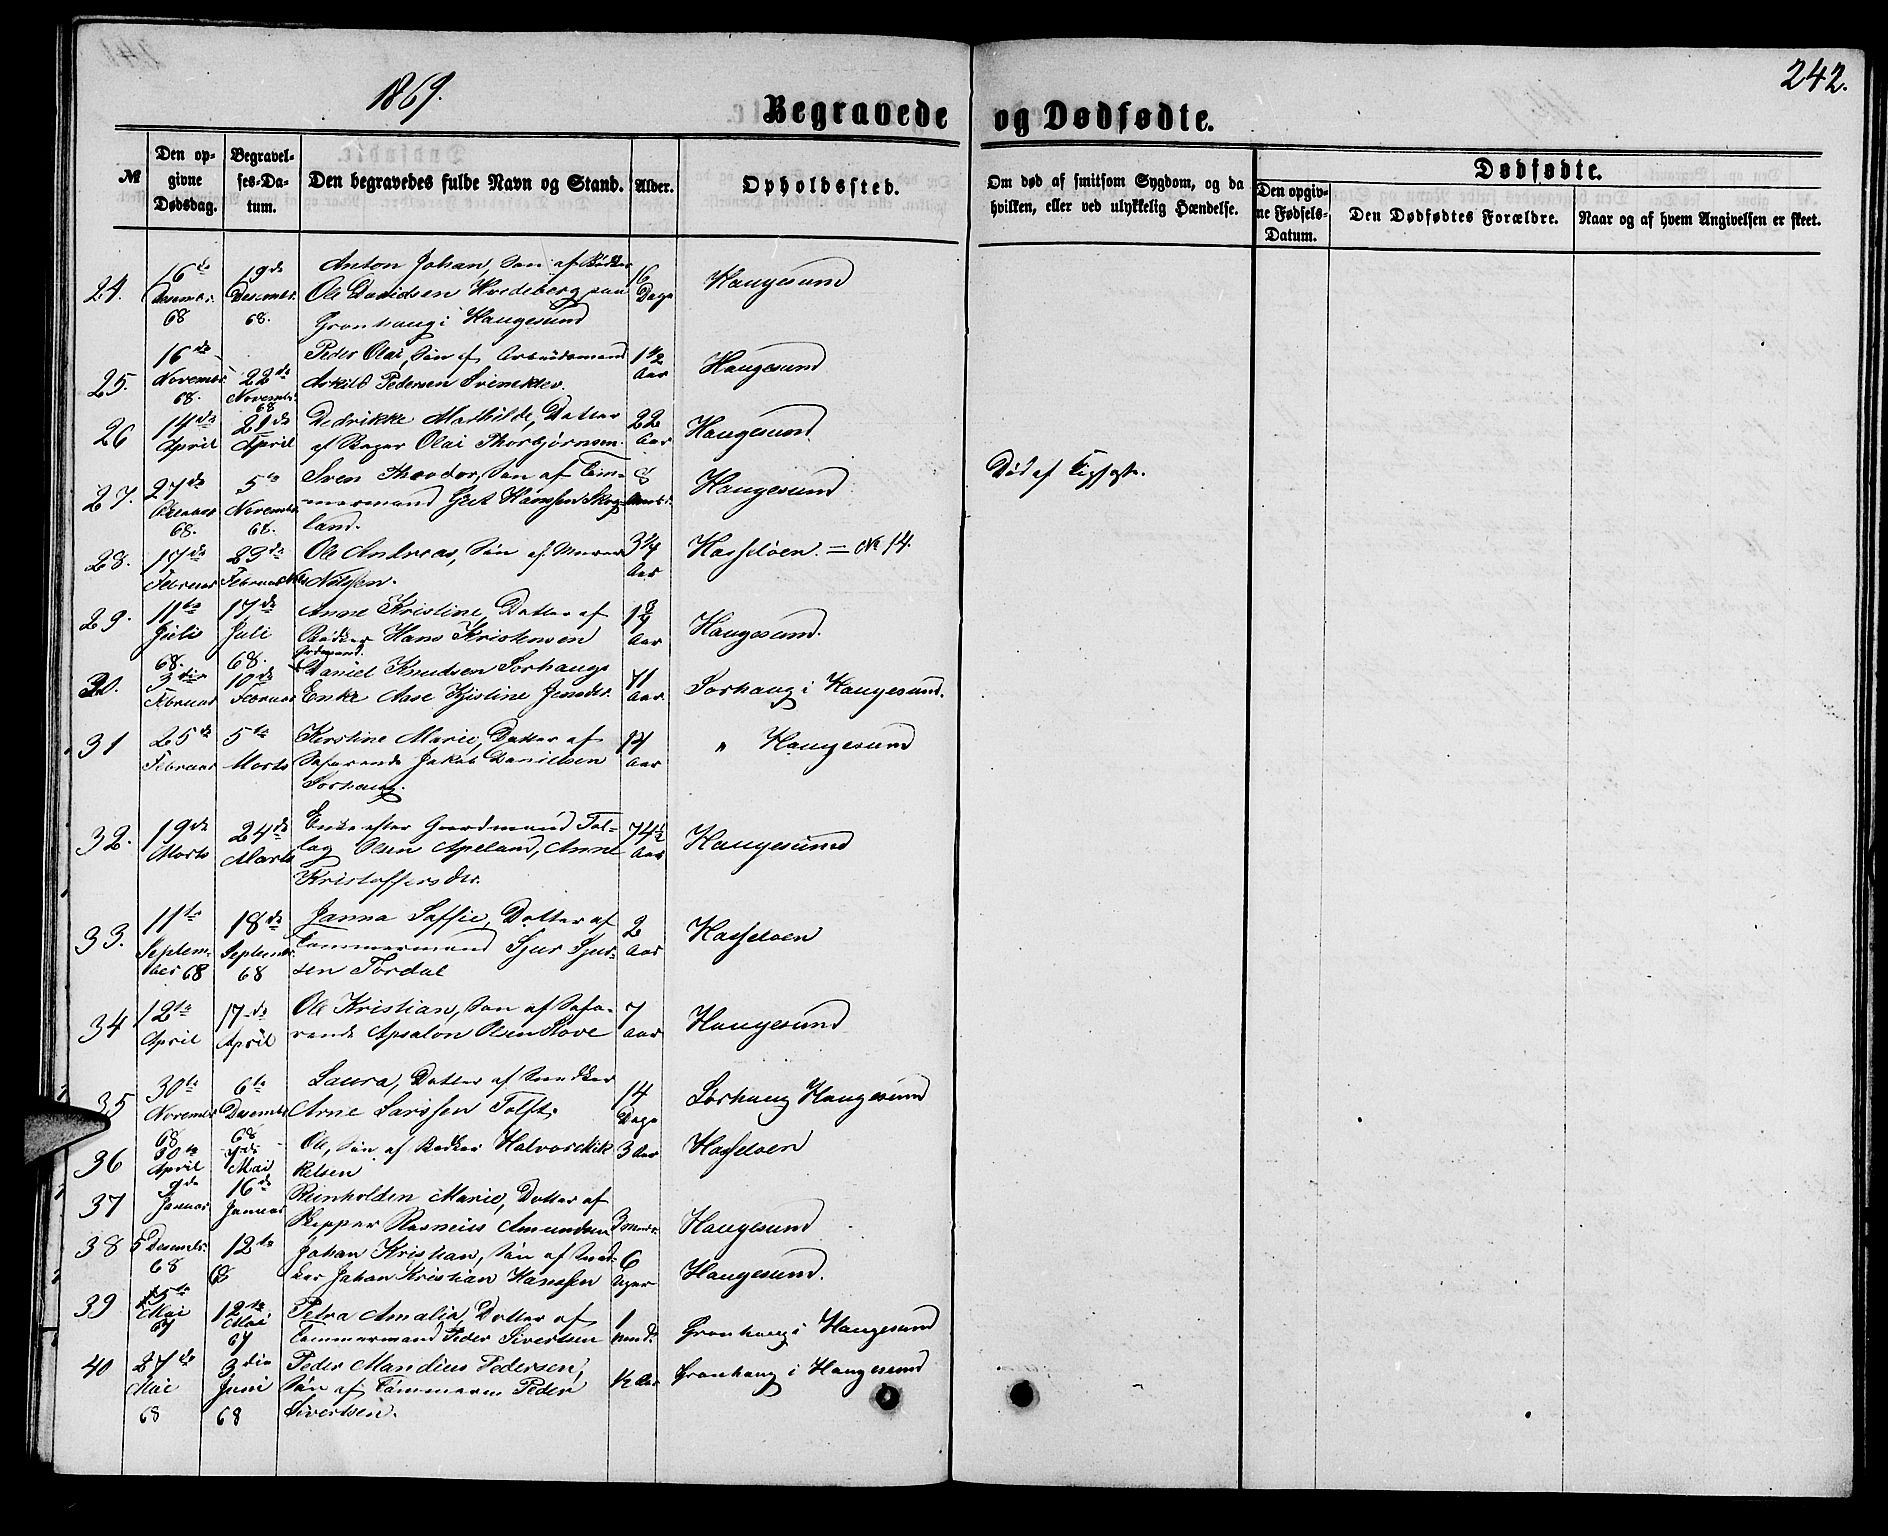 242.
1869.
Begravede og Dødfødte.
№
Den op-
givne
Dødsdag.
Begravel-
ses-Da-
tum.
Den begravedes fulde Navn og Stand.
Alder.
Opholdssted.
Om død af smitsom Sygdom, og da
hvilken, eller ved ulykkelig Hændelse.
Dødfødte.
Den opgiv-
ne Fødsels-
Datum.
Den Dødfødtes Forældre.
Naar og af hvem Angivelsen er skeet.
24. 16de Desembr. 68 19de Desembr. 68. Anton Johan, Søn af Bødker
Ole Davidsen Hvedeberg paa
Grønhaug i Haugesund 16 Dage Haugesund
25. 16de Novembr. 68. 22de Novembr. 68 Peder Olai, Søn af Arbeidsmand
Askild Pedersen Svineklev. 1 1/2 Aar Haugesund
26 14de April 21de April Dedrikke Mathilde, Datter
af Bager Olai Thorbjørnsen. 22 Aar Haugesund
27. 27de 68. 5te Novembr. 68. Sven Theodor, Søn af Tøm-
mermand Gert Hanssen Skog-
land. 8 Haugesund Død af
28. 17de Februar 23de Februar Ole Andreas, Søn af Murer
Nilssen. 3 3/4 Aar Hasseløen. = № 14.
29. 11te Juli 68. 17de Juli 68. Anne Kristine, Datter af
Bødker Hans Kristensen Aar Haugesund.
30. 3die Februar 10de Februar Grdmand. Daniel Knudsen Sørhaugs
Enke Ase Kjistine Jensdtr. 71 Aar. Sørhaug i Haugesund.
31 25de Februar 5te Marts Kirstine Marie, Datter af
Søfarende Jakob Danielsen
Sørhaug. 14 Aar " Haugesund
32. 19de Marts 24de Marts Enke efter Gaardmand Tol-
lag Olsen Apeland, Anne
Kristoffersdtr. 74 1/2 Aar Haugesund
33. 11te Septem-
ber 68 18de Septembr. 68 Janna Soffie, Datter af
Tømmermand Sjur Sjur-
sen Tordal 2 Aar Hasseløen
34 12te April 17de April Ole Kristian, Søn af Søfa-
rende Apsalon Olsen Stove 7 Aar Haugesund
35 30te Novembr. 68 6te Desembr. 68 Laura, Datter af Snedker
Arne Larssen Toft. 14 Dage Sørhaug Haugesund
36 30te April Mai Ole, Søn af Bødker Halvor Mik
kelsen 3 Aar Hasseløen
37 9de Januar 16de Januar Reinholden Marie, Datter af
Skipper Rasmus Amundsen 3 Haugesund
38 5 Desembr. 68 12te 68 Johan Kristian, Søn af Sned-
ker Johan Kristian Hanssen 6 Uger Haugesund.
39 5te Mai 67 12te Mai 67 Petra Amalia, Datter af
Tømmermand Peder Sivertsen 1 Grønhaug i Haugesund
40 27de Mai 68 3die Juni 68 Peder Mandius Pedersen,
Søn af Tømmerm. Peder
Sivertsen. 1/2 Aar Grønhaug i Haugesund